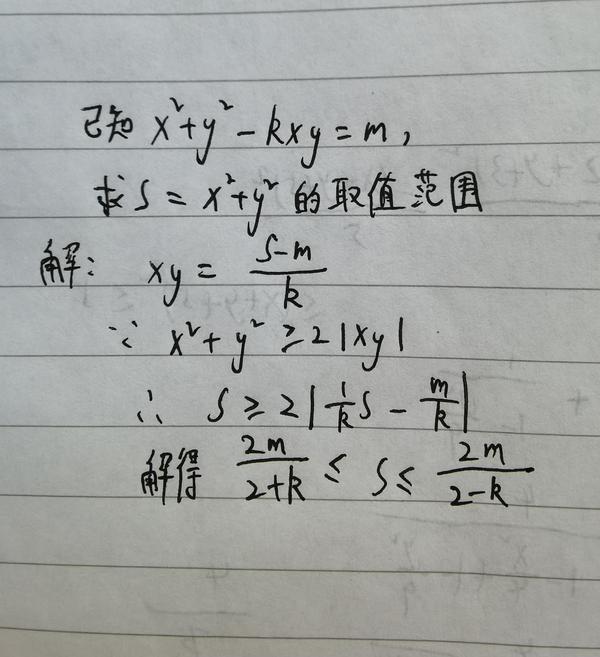 已知 x²+y²-kxy=m,
求 S = x²+y² 的取值范围
解: xy = (S-m)/k
∵ x²+y² ≥ 2|xy|
∴ S ≥ 2|1/k S - m/k|
解得 2m/(2+k) ≤ S ≤ 2m/(2-k)